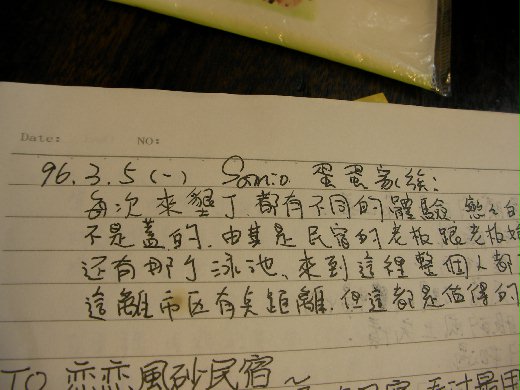 Date: NO:
96.3.5(一) Sonia 蛋蛋家族:
每次來墾丁,都有不同的體驗
不是蓋的,尤其是民宿的老板跟老板娘
还有那个泳池,來到這裡整個人都
這離市区有点距離,但這都是值得的
TO 恋恋風砂民宿~